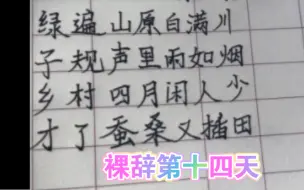 绿遍山原白满川
子规声里雨如烟
乡村四月闲人少
才了蚕桑又插田
裸辞第十四天